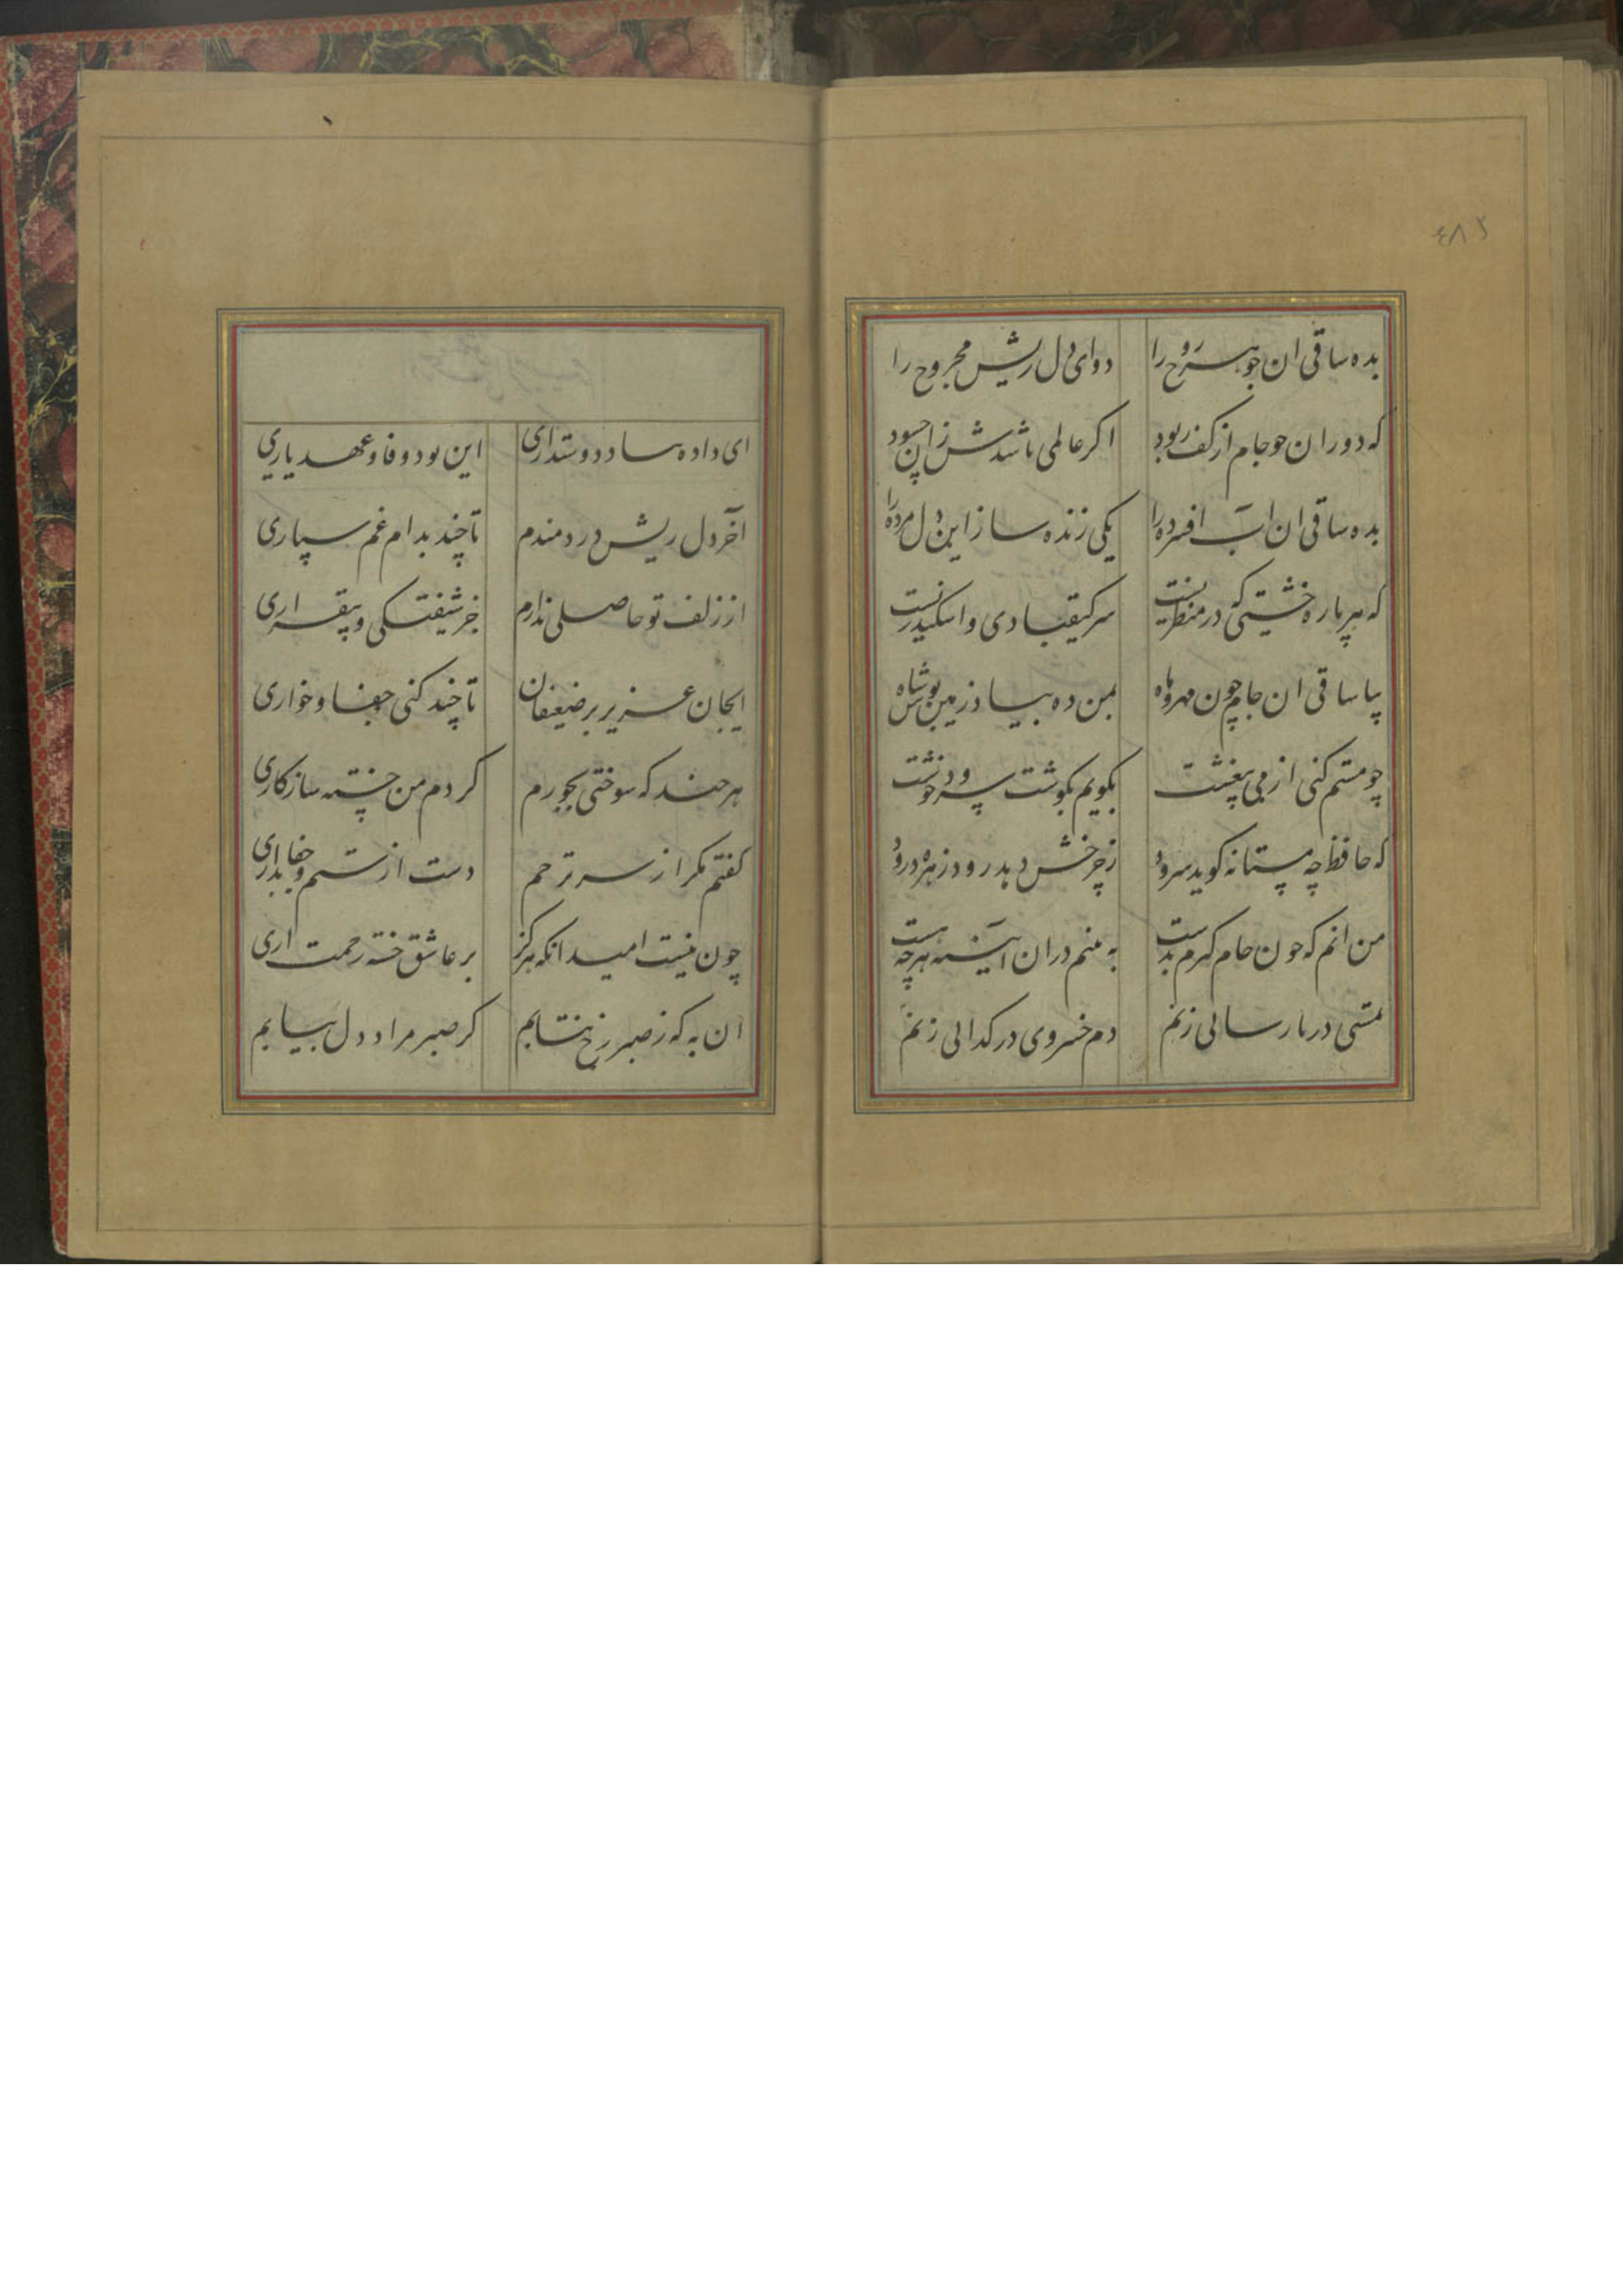 بده ساقی ان جوهر روح را دوای دل ریش مجروح را
که دوران چو جام از کف ربود اگر عالمی باشدش زان چسود
بده ساقی ان اب افسرده را یکی زنده ساز این دل مرده را
که هر پاره خشتی که در منظریست سر کیقبادی و اسکندریست
بیا ساقی ان جام چون مهر و ماه بمن ده بیاد زمین بوس شاه
چو مستم کنی از می بیغشت بگویم بگوشت سرود خوشت
که حافظ چه مستانه گوید سرود ز چرخش دهد رود زهره درود
من انم که چون جام گیرم بدست به بینم دران اینه هر چه هست
بمستی در پارسائی زنم دم خسروی در گدائی زنم
ای داده بباد دوستداری این بود وفا و عهد یاری
آخر دل ریش دردمندم تا چند بدام غم سپاری
از زلف تو حاصلی ندارم جز شیفتگی و بیقراری
ایجان عزیز بر ضعیفان تا چند کنی جفا و خواری
هر چند که سوختی بجورم کردم من خسته سازکاری
گفتم مگر از سر ترحم دست از ستم و جفا بداری
چون نیست امید انکه هرگز بر عاشق خسته رحمت اری
ان به که ز صبر رخ نتابم گر صبر مراد دل بیابم